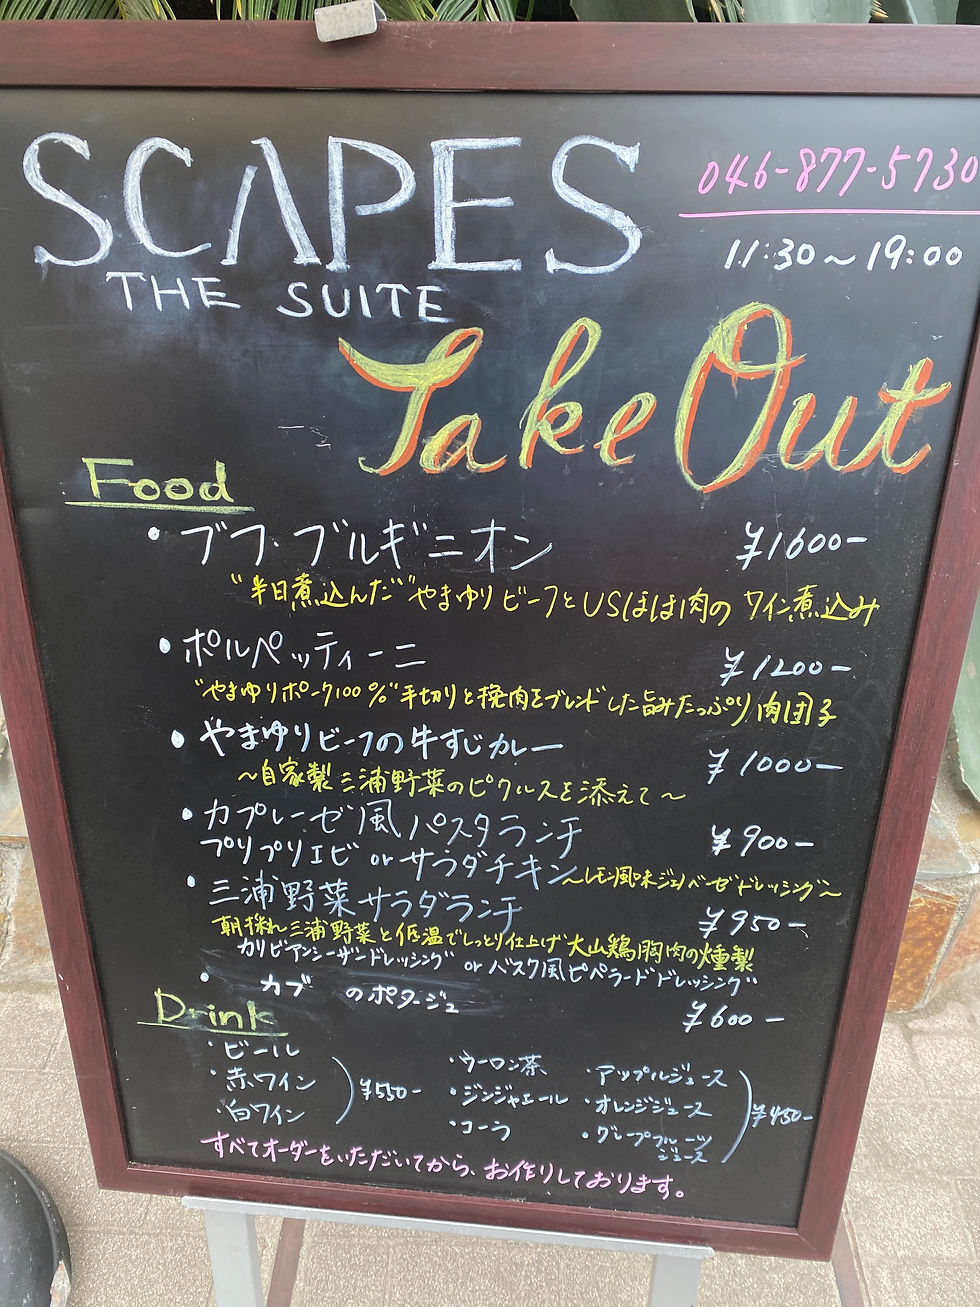 SCAPES
THE SUITE
046-877-5730
11:30～19:00
Take Out
Food
・ブフ・ブルギニオン ¥1600-
"半日煮込んだ"やまゆりビーフとUSほほ肉のワイン煮込み
・ポルペッティーニ ¥1200-
"やまゆりポーク100%"手切りと挽肉をブレンドした旨みたっぷり肉団子
・やまゆりビーフの牛すじカレー ¥1000-
～自家製三浦野菜のピクルスを添えて～
・カプレーゼ風パスタランチ ¥900-
プリプリエビ or サラダチキン～レモン風味ジェノベーゼドレッシング～
・三浦野菜サラダランチ ¥950-
朝採れ三浦野菜と低温でしっとり仕上げ大山鶏胸肉の燻製
カリビアンシーザードレッシング or バスク風ピペラードドレッシング
・カブのポタージュ ¥600-
Drink
・ビール
・赤ワイン
・白ワイン
¥550-
・ウーロン茶
・ジンジャエール
・コーラ
・アップルジュース
・オレンジジュース
・グレープフルーツ
ジュース
¥450-
すべてオーダーをいただいてから、お作りしております。